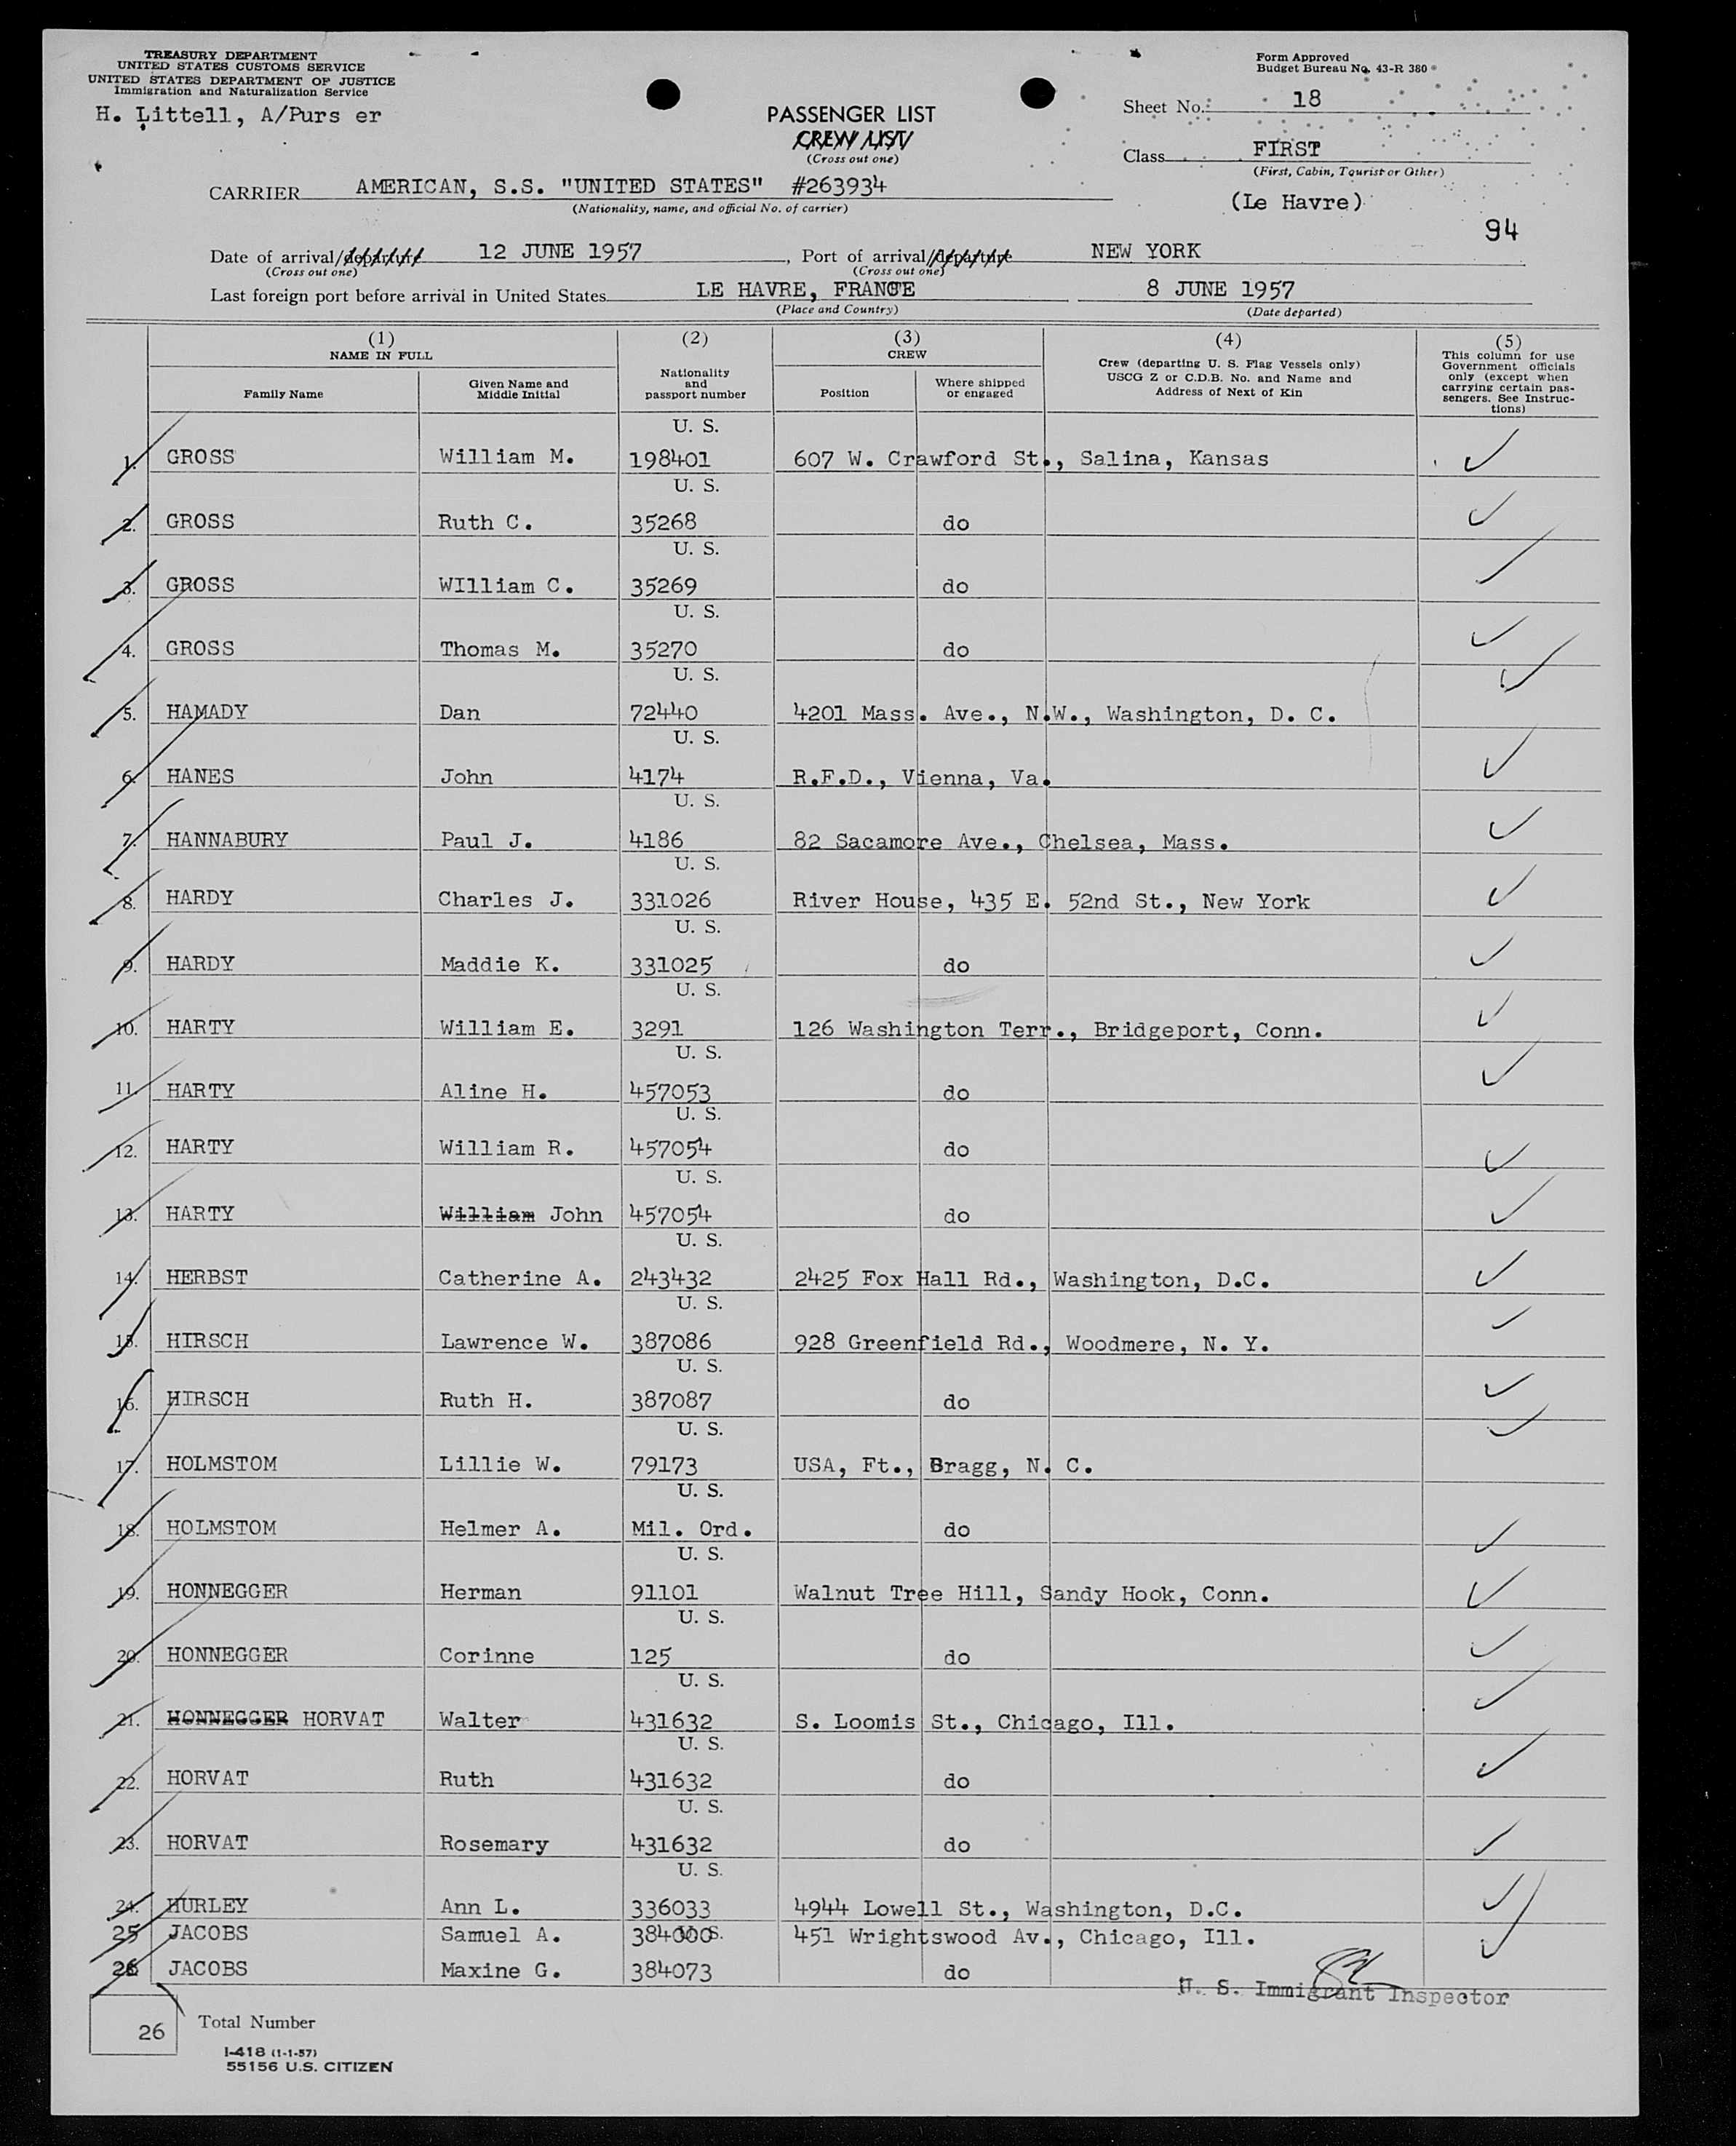 TREASURY DEPARTMENT
UNITED STATES CUSTOMS SERVICE
UNITED STATES DEPARTMENT OF JUSTICE
Immigration and Naturalization Service
H. Littell, A/Purs er
PASSENGER LIST
CREW LIST
(Cross out one)
Form Approved
Budget Bureau No. 43-R 380
Sheet No. 18
Class FIRST
(First, Cabin, Tourist or Other)
(Le Havre)
94
CARRIER AMERICAN, S.S. "UNITED STATES" #263934
(Nationality, name, and official No. of carrier)
Date of arrival/departure 12 JUNE 1957, Port of arrival/departure NEW YORK
(Cross out one) (Cross out one)
Last foreign port before arrival in United States LE HAVRE, FRANCE 8 JUNE 1957
(Place and Country) (Date departed)
(1) NAME IN FULL
Family Name
Given Name and Middle Initial
(2) Nationality and passport number
(3) CREW
Position
Where shipped or engaged
(4) Crew (departing U. S. Flag Vessels only) USCG Z or C.D.B. No. and Name and Address of Next of Kin
(5) This column for use Government officials only (except when carrying certain passengers. See Instructions)
U. S.
1. GROSS William M. 198401 607 W. Crawford St., Salina, Kansas
U. S.
2. GROSS Ruth C. 35268 do
U. S.
3. GROSS WIlliam C. 35269 do
U. S.
4. GROSS Thomas M. 35270 do
U. S.
5. HAMADY Dan 72440 4201 Mass. Ave., N.W., Washington, D. C.
U. S.
6. HANES John 4174 R.F.D., Vienna, Va.
U. S.
7. HANNABURY Paul J. 4186 82 Sacamore Ave., Chelsea, Mass.
U. S.
8. HARDY Charles J. 331026 River House, 435 E. 52nd St., New York
U. S.
9. HARDY Maddie K. 331025 do
U. S.
10. HARTY William E. 3291 126 Washington Terr., Bridgeport, Conn.
U. S.
11. HARTY Aline H. 457053 do
U. S.
12. HARTY William R. 457054 do
U. S.
13. HARTY William John 457054 do
U. S.
14. HERBST Catherine A. 243432 2425 Fox Hall Rd., Washington, D.C.
U. S.
15. HIRSCH Lawrence W. 387086 928 Greenfield Rd., Woodmere, N. Y.
U. S.
16. HIRSCH Ruth H. 387087 do
U. S.
17. HOLMSTOM Lillie W. 79173 USA, Ft., Bragg, N. C.
U. S.
18. HOLMSTOM Helmer A. Mil. Ord. do
U. S.
19. HONNEGGER Herman 91101 Walnut Tree Hill, Sandy Hook, Conn.
U. S.
20. HONNEGGER Corinne 125 do
U. S.
21. HONNEGGER HORVAT Walter 431632 S. Loomis St., Chicago, Ill.
U. S.
22. HORVAT Ruth 431632 do
U. S.
23. HORVAT Rosemary 431632 do
U. S.
24. HURLEY Ann L. 336033 4944 Lowell St., Washington, D.C.
25 JACOBS Samuel A. 384000 U. S. 451 Wrightswood Av., Chicago, Ill.
26 JACOBS Maxine G. 384073 do
U. S. Immigrant Inspector
26 Total Number
I-418 (1-1-57)
55156 U.S. CITIZEN